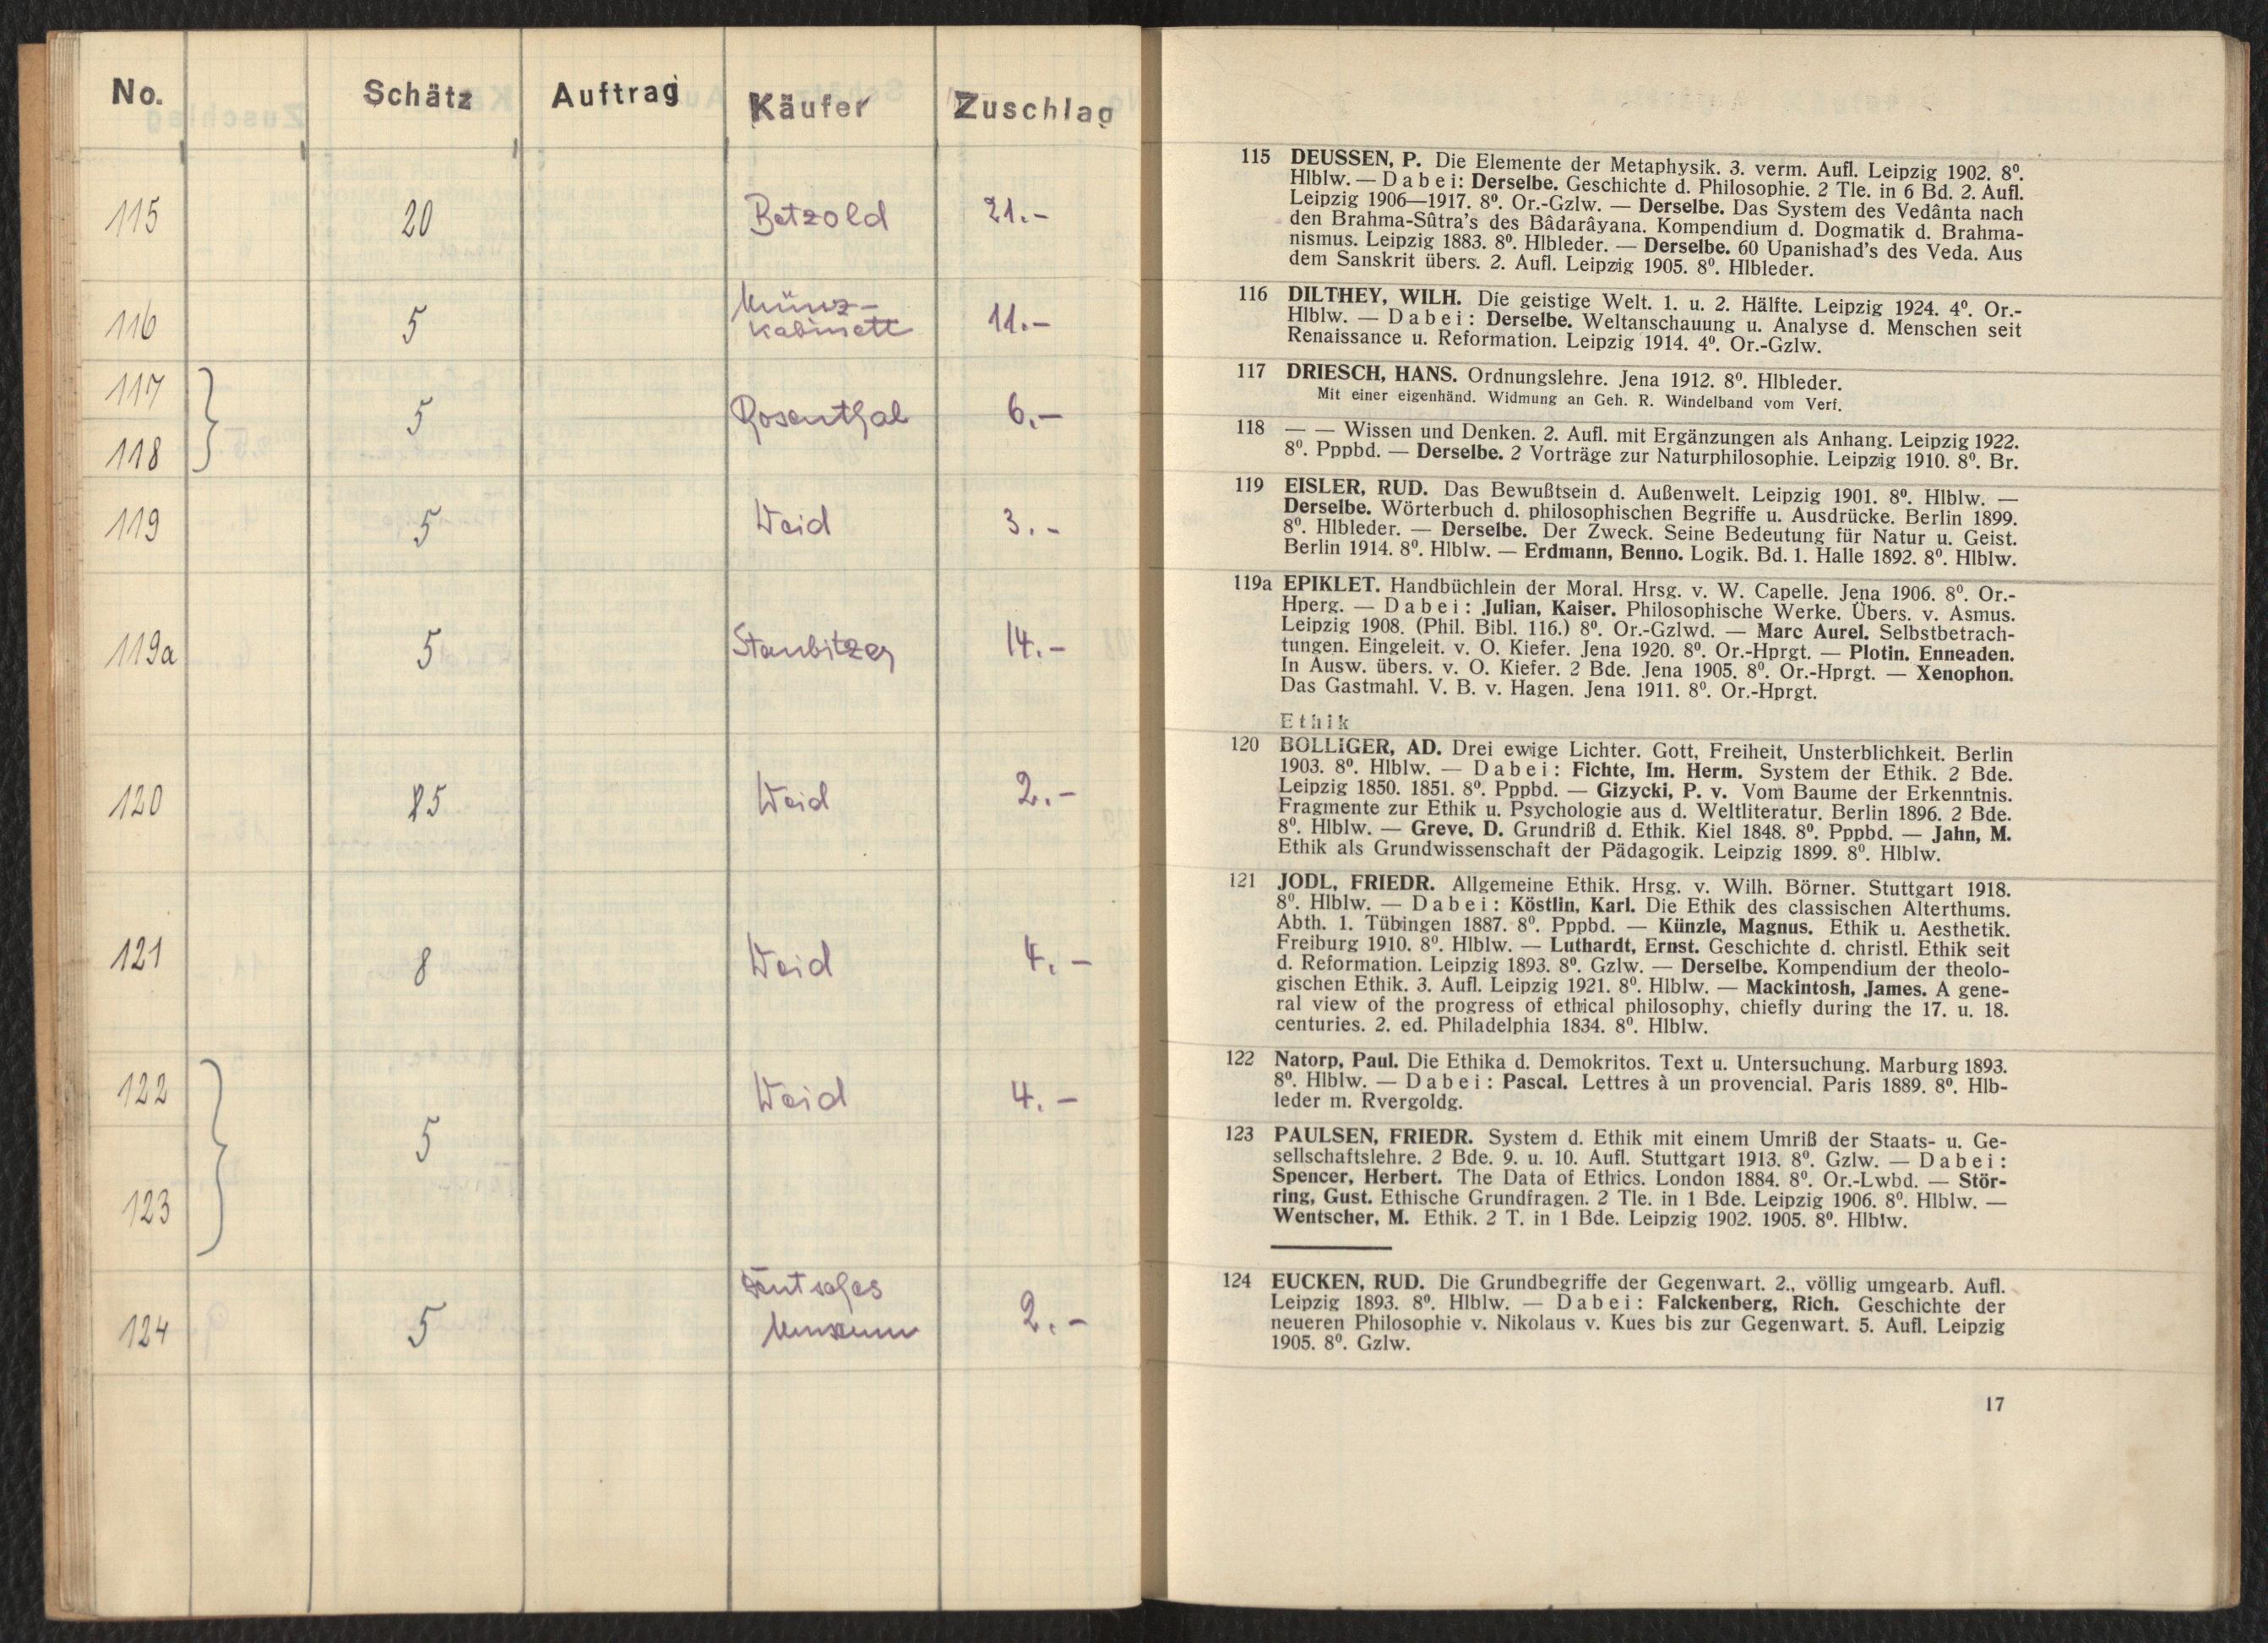 No. Schätz Auftrag Käufer Zuschlag
115 20 Betzold 21.-
116 5 Münz-
kabinett 11.-
117
5 Rosenthal 6.-
118
119 5 Weid 3.-
119a 5 Staubitzer 14.-
120 25 Weid 2.-
121 8 Weid 4.-
122 Weid 4.-
5
123
124 5 Deutsches
Museum 2.-
115 DEUSSEN, P. Die Elemente der Metaphysik. 3. verm. Aufl. Leipzig 1902. 8⁰.
Hlblw. — Dabei: Derselbe. Geschichte d. Philosophie. 2 Tle. in 6 Bd. 2. Aufl.
Leipzig 1906—1917. 8⁰. Or.-Gzlw. — Derselbe. Das System des Vedânta nach
den Brahma-Sûtra's des Bâdarâyana. Kompendium d. Dogmatik d. Brahma-
nismus. Leipzig 1883. 8⁰. Hlbleder. — Derselbe. 60 Upanishad's des Veda. Aus
dem Sanskrit übers. 2. Aufl. Leipzig 1905. 8⁰. Hlbleder.
116 DILTHEY, WILH. Die geistige Welt. 1. u. 2. Hälfte. Leipzig 1924. 4⁰. Or.-
Hlblw. — Dabei: Derselbe. Weltanschauung u. Analyse d. Menschen seit
Renaissance u. Reformation. Leipzig 1914. 4⁰. Or.-Gzlw.
117 DRIESCH, HANS. Ordnungslehre. Jena 1912. 8⁰. Hlbleder.
Mit einer eigenhänd. Widmung an Geh. R. Windelband vom Verf.
118 — — Wissen und Denken. 2. Aufl. mit Ergänzungen als Anhang. Leipzig 1922.
8⁰. Pppbd. — Derselbe. 2 Vorträge zur Naturphilosophie. Leipzig 1910. 8⁰. Br.
119 EISLER, RUD. Das Bewußtsein d. Außenwelt. Leipzig 1901. 8⁰. Hlblw. —
Derselbe. Wörterbuch d. philosophischen Begriffe u. Ausdrücke. Berlin 1899.
8⁰. Hlbleder. — Derselbe. Der Zweck. Seine Bedeutung für Natur u. Geist.
Berlin 1914. 8⁰. Hlblw. — Erdmann, Benno. Logik. Bd. 1. Halle 1892. 8⁰. Hlblw.
119a EPIKLET. Handbüchlein der Moral. Hrsg. v. W. Capelle. Jena 1906. 8⁰. Or.-
Hperg. — Dabei: Julian, Kaiser. Philosophische Werke. Übers. v. Asmus.
Leipzig 1908. (Phil. Bibl. 116.) 8⁰. Or.-Gzlwd. — Marc Aurel. Selbstbetrach-
tungen. Eingeleit. v. O. Kiefer. Jena 1920. 8⁰. Or.-Hprgt. — Plotin. Enneaden.
In Ausw. übers. v. O. Kiefer. 2 Bde. Jena 1905. 8⁰. Or.-Hprgt. — Xenophon.
Das Gastmahl. V. B. v. Hagen. Jena 1911. 8⁰. Or.-Hprgt.
Ethik
120 BOLLIGER, AD. Drei ewige Lichter. Gott, Freiheit, Unsterblichkeit. Berlin
1903. 8⁰. Hlblw. — Dabei: Fichte, Im. Herm. System der Ethik. 2 Bde.
Leipzig 1850. 1851. 8⁰. Pppbd. — Gizycki, P. v. Vom Baume der Erkenntnis.
Fragmente zur Ethik u. Psychologie aus d. Weltliteratur. Berlin 1896. 2 Bde.
8⁰. Hlblw. — Greve, D. Grundriß d. Ethik. Kiel 1848. 8⁰. Pppbd. — Jahn, M.
Ethik als Grundwissenschaft der Pädagogik. Leipzig 1899. 8⁰. Hlblw.
121 JODL, FRIEDR. Allgemeine Ethik. Hrsg. v. Wilh. Börner. Stuttgart 1918.
8⁰. Hlblw. — Dabei: Köstlin, Karl. Die Ethik des classischen Alterthums.
Abth. 1. Tübingen 1887. 8⁰. Pppbd. — Künzle, Magnus. Ethik u. Aesthetik.
Freiburg 1910. 8⁰. Hlblw. — Luthardt, Ernst. Geschichte d. christl. Ethik seit
d. Reformation. Leipzig 1893. 8⁰. Gzlw. — Derselbe. Kompendium der theolo-
gischen Ethik. 3. Aufl. Leipzig 1921. 8⁰. Hlblw. — Mackintosh, James. A gene-
ral view of the progress of ethical philosophy, chiefly during the 17. u. 18.
centuries. 2. ed. Philadelphia 1834. 8⁰. Hlblw.
122 Natorp, Paul. Die Ethika d. Demokritos. Text u. Untersuchung. Marburg 1893.
8⁰. Hlblw. — Dabei: Pascal. Lettres à un provencial. Paris 1889. 8⁰. Hlb-
leder m. Rvergoldg.
123 PAULSEN, FRIEDR. System d. Ethik mit einem Umriß der Staats- u. Ge-
sellschaftslehre. 2 Bde. 9. u. 10. Aufl. Stuttgart 1913. 8⁰. Gzlw. — Dabei:
Spencer, Herbert. The Data of Ethics. London 1884. 8⁰. Or.-Lwbd. — Stör-
ring, Gust. Ethische Grundfragen. 2 Tle. in 1 Bde. Leipzig 1906. 8⁰. Hlblw. —
Wentscher, M. Ethik. 2 T. in 1 Bde. Leipzig 1902. 1905. 8⁰. Hlblw.
124 EUCKEN, RUD. Die Grundbegriffe der Gegenwart. 2., völlig umgearb. Aufl.
Leipzig 1893. 8⁰. Hlblw. — Dabei: Falckenberg, Rich. Geschichte der
neueren Philosophie v. Nikolaus v. Kues bis zur Gegenwart. 5. Aufl. Leipzig
1905. 8⁰. Gzlw.
17